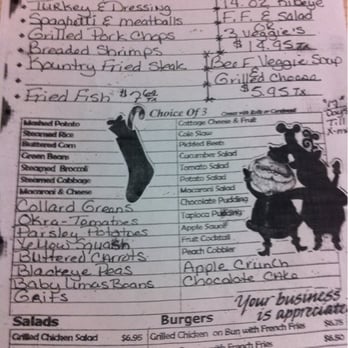 Turkey & Dressing
14 oz Ribeye
Spaghetti & meatballs
F.F. & Salad
or
Grilled Pork Chops
3 Veggie's
Breaded Shrimps
$14.95 Tx
Kountry Fried Steak
Beef Veggie Soup
Grilled Cheese
Fried Fish
$5.95 Tx
Choice Of 3
Days
Till
X-ma
Mashed Potato
Cottage Cheese & Fruit
Steamed Rice
Cole Slaw
Buttered Corn
Pickled Beets
Green Beans
Cucumber Salad
Steamed Broccoli
Tomato Salad
Steamed Cabbage
Potato Salad
Macaroni & Cheese
Macaroni Salad
Collard Greens
Chocolate Pudding
Okra-Tomatoes
Tapioca Pudding
Parsley Potatoes
Apple Sauce
Yellow Squash
Fruit Cocktail
Buttered Carrots
Peach Cobbler
Blackeye Peas
Apple Crunch
Baby Limas Beans
Chocolate Cake
Grits
Your business
is appreciate
Salads
Burgers
Grilled Chicken Salad $6.95
Grilled Chicken on Bun with French Fries $6.75
French Fries $6.50